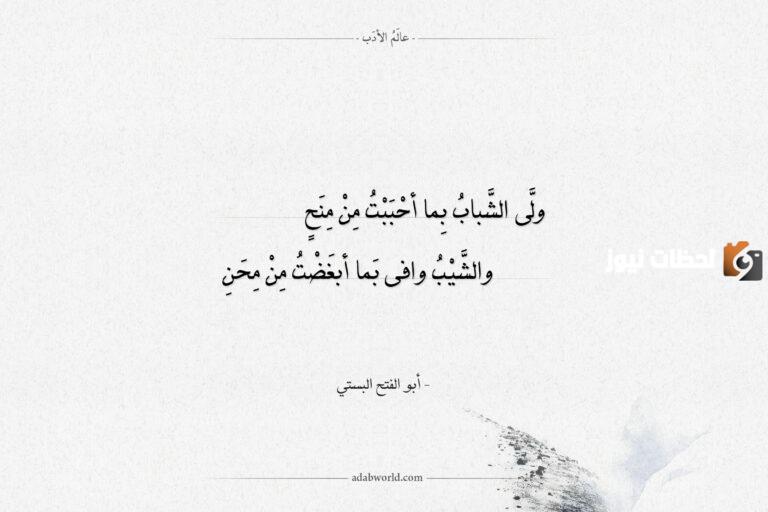 - عالَمُ الأدَب -
ولَّى الشَّبابُ بِما أحْبَبْتُ مِنْ مِنَحٍ
والشَّيْبُ وافى بَما أبغَضْتُ مِنْ مِحَنِ
لحظات نيوز
- أبو الفتح البستي
adabworld.com